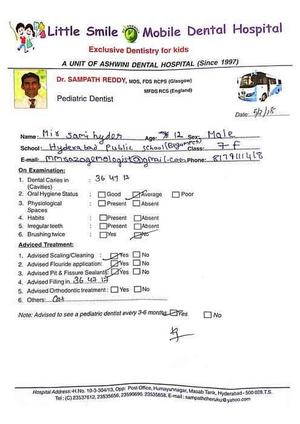 Little Smile Mobile Dental Hospital
Exclusive Dentistry for kids
A UNIT OF ASHWINI DENTAL HOSPITAL (Since 1997)
Dr. SAMPATH REDDY, MDS, FDS RCPS (Glasgow)
MFDS RCS (England)
Pediatric Dentist
Date:
Name: Age: 12 Sex: Male
School: Hyderabad Public school Class: 7 F
E-mail: Phone:
On Examination:
1. Dental Caries in (Cavities) 36 47 17
2. Oral Hygiene Status : Good Average Poor
3. Physiological Spaces : Present Absent
4. Habits : Present Absent
5. Irregular teeth : Present Absent
6. Brushing twice : Yes No
Adviced Treatment:
1. Advised Scaling/Cleaning : Yes No
2. Advised Flouride application: Yes No
3. Advised Pit & Fissure Sealants Yes No
4. Advised Filling in 36 47 17
5. Advised Orthodontic treatment : Yes No
6. Others:
Note: Advised to see a pediatric dentist every 3-6 months Yes No
Hospital Address: H.No. 10-3-304/13, Opp: Post Office, Humayunnagar, Masab Tank, Hyderabad - 500 028 T.S.
Tel : (C) 23537612, 23535656, 23590690, 23535858, E-mail : sampathcheruku@yahoo.com